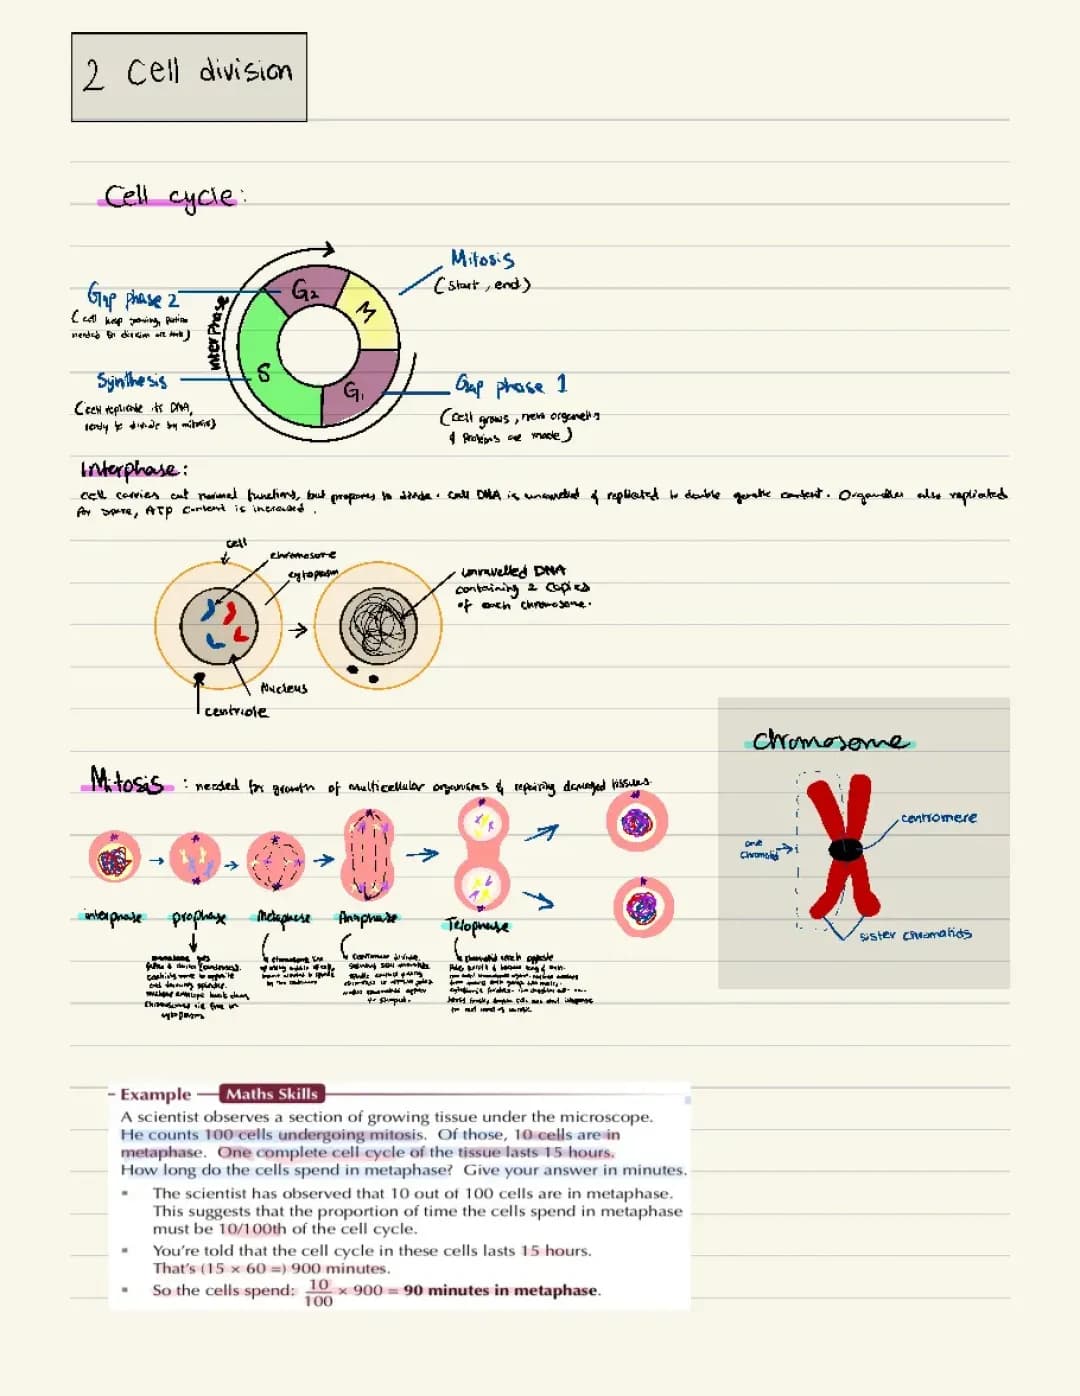 2 Cell division
Cell cycle:
Mitosis
(start, end)
Gap phase 2
(cell keep growing, protien
needed for division are made)
Interphase
G2
M
S
G1
Synthesis
(cell replicate its DNA,
ready to divide by mitosis)
Gap phase 1
(cell grows, new organells
& proteins are made)
Interphase:
cell carries out normal functions, but prepares to divide. Cell DNA is unravelled & replicated to double genetic content. Organelles also replicated
for spare, ATP content is increased.
cell
chromosome
cytoplasm
unravelled DNA
containing 2 copies
of each chromosome.
Nucleus
centriole
chromosome
centromere
one
chromatid
sister chromatids
Mitosis : needed for growth of multicellular organisms & repairing damaged tissues
interphase
prophase
Metaphase
Anaphase
Telophase
nuclear envelope break down,
chromosomes lie free in
cytoplasm
Example
Maths Skills
A scientist observes a section of growing tissue under the microscope.
He counts 100 cells undergoing mitosis. Of those, 10 cells are in
metaphase. One complete cell cycle of the tissue lasts 15 hours.
How long do the cells spend in metaphase? Give your answer in minutes.
▪ The scientist has observed that 10 out of 100 cells are in metaphase.
This suggests that the proportion of time the cells spend in metaphase
must be 10/100th of the cell cycle.
▪ You're told that the cell cycle in these cells lasts 15 hours.
That's (15 × 60 =) 900 minutes.
▪ So the cells spend: 10/100 × 900 = 90 minutes in metaphase.